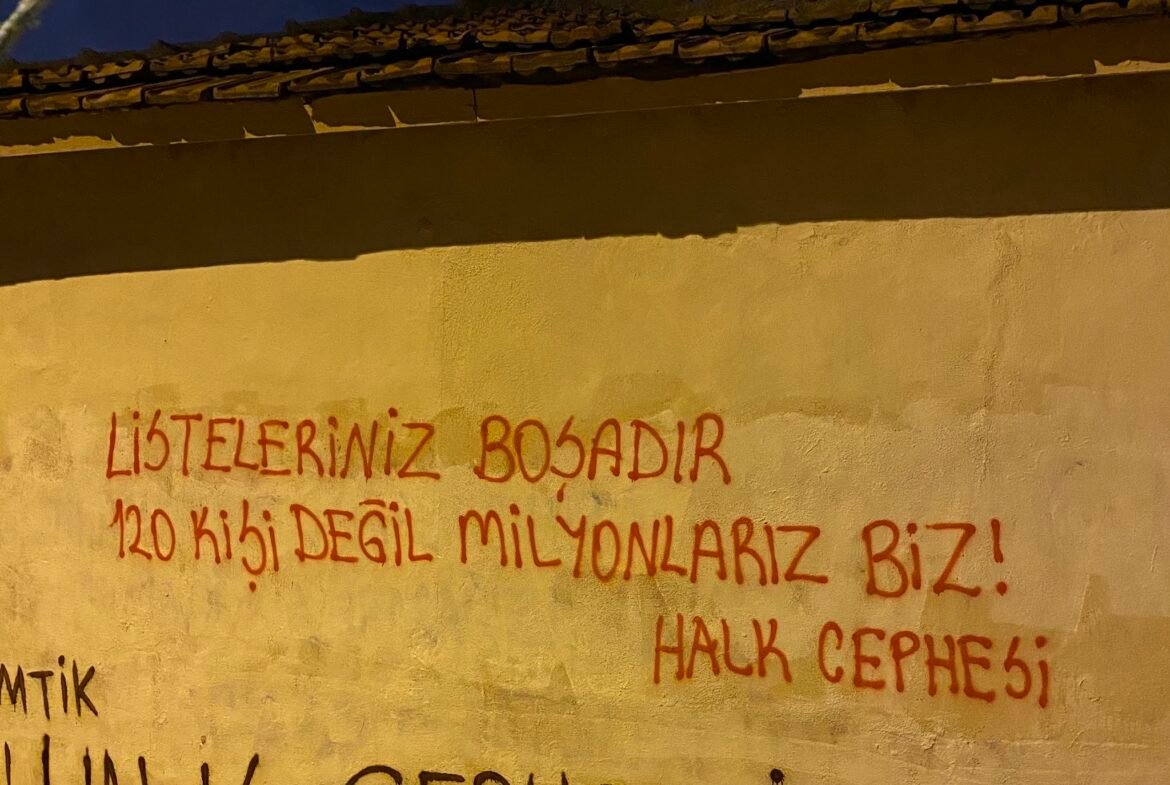 LİSTELERİNİZ BOŞADIR
120 KİŞİ DEĞİL MİLYONLARIZ BİZ!
HALK CEPHESİ
MTİK